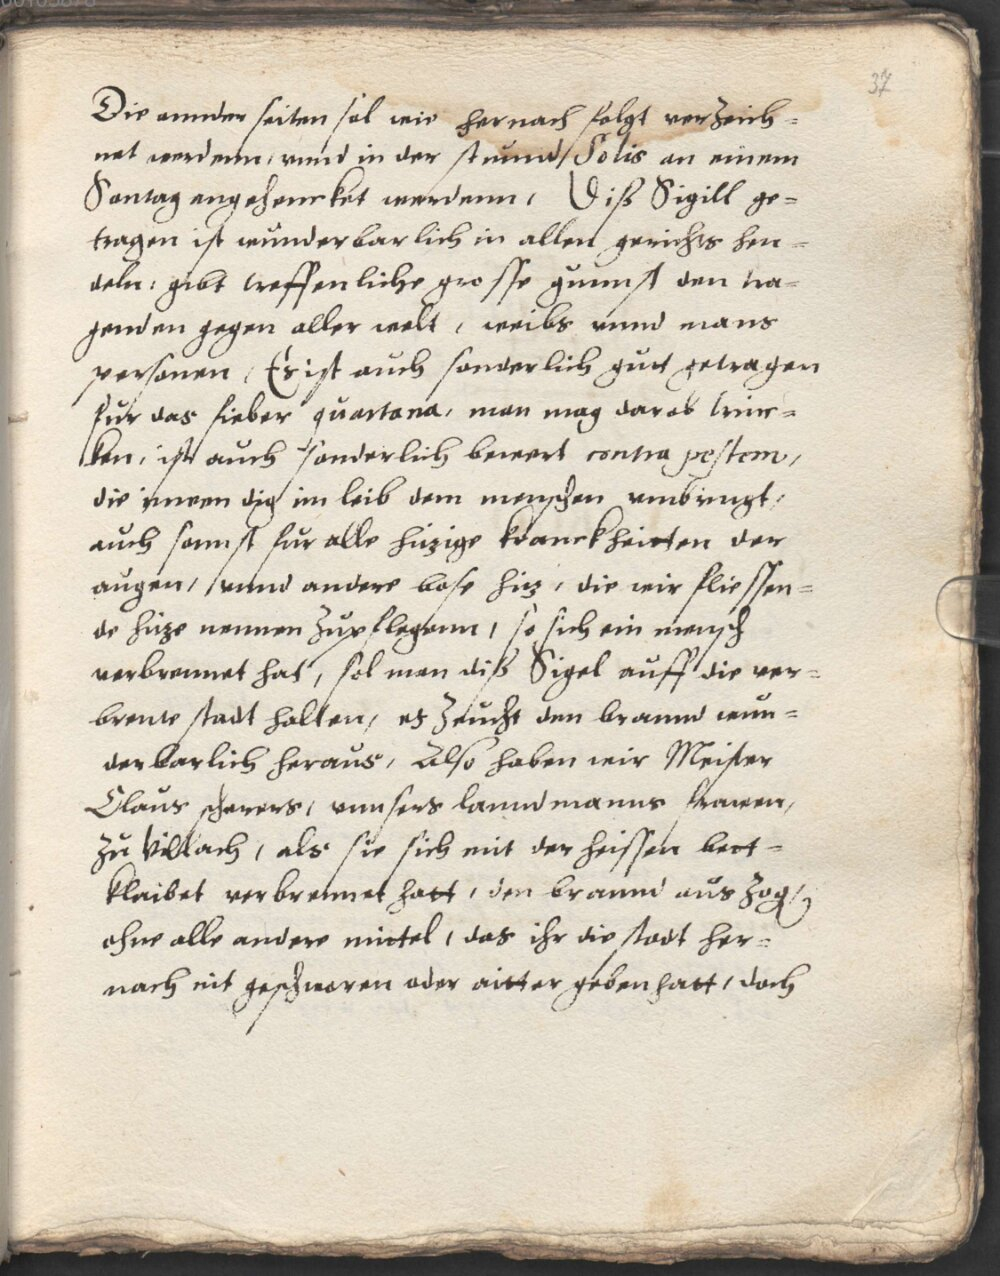 37
Die annder seiten sol wie hernach folgt verzeich=
net werdenn, unnd in der stunnd Solis an einem
Sontag angehencket werdenn, Diß Sigill ge=
tragen ist wunderbarlich in allen gerichts hen=
deln: gibt treffenliche grosse gunnst den tra=
genden gegen aller welt, weibs unnd mans
personen, Es ist auch sonderlich gutt getragen
fur das fieber quartana, man mag darab trinc=
ken, ist auch sonderlich bewert contra pestem,
die inwendig im leib dem menschen umbringt,
auch sonnst fur alle hizige kranckheitten der
augen, unnd andere bose hiz, die wir fliessen=
de hize nennen zupflegenn, so sich ein mensch
verbrennet hat, sol man diß Sigel auff die ver=
brente stadt halten, es zeucht den brannd wun=
derbarlich heraus, Also haben wir Meister
Claus scherers, unnsers lanndmanns frawen,
zu Villach, als sie sich mit der heissen bett=
klaibet verbrennet hatt, den brannd aus zog,
ohne alle andere mittel, das ihr die stadt her=
nach nit geschworen oder aitter geben hatt, doch